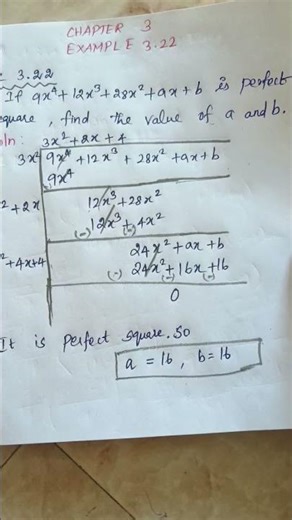 CHAPTER 3
EXAMPLE 3.22
3.22
If 9x⁴+12x³+28x²+ax+b is perfect
square, find the value of a and b.
oln: 3x²+2x+4
3x² 9x⁴+12x³+28x²+ax+b
9x⁴
²+2x 12x³+28x²
(-) 12x³+4x² (-)
24x²+ax+b
²+4x+4 (-) 24x²+16x+16 (-) (-)
0
It is perfect square. So
a = 16, b=16